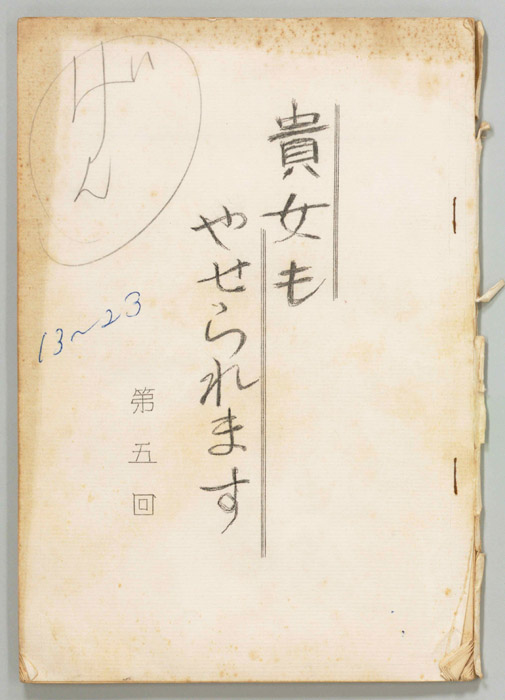 貴女も
やせられます
第五回
げん
13～23